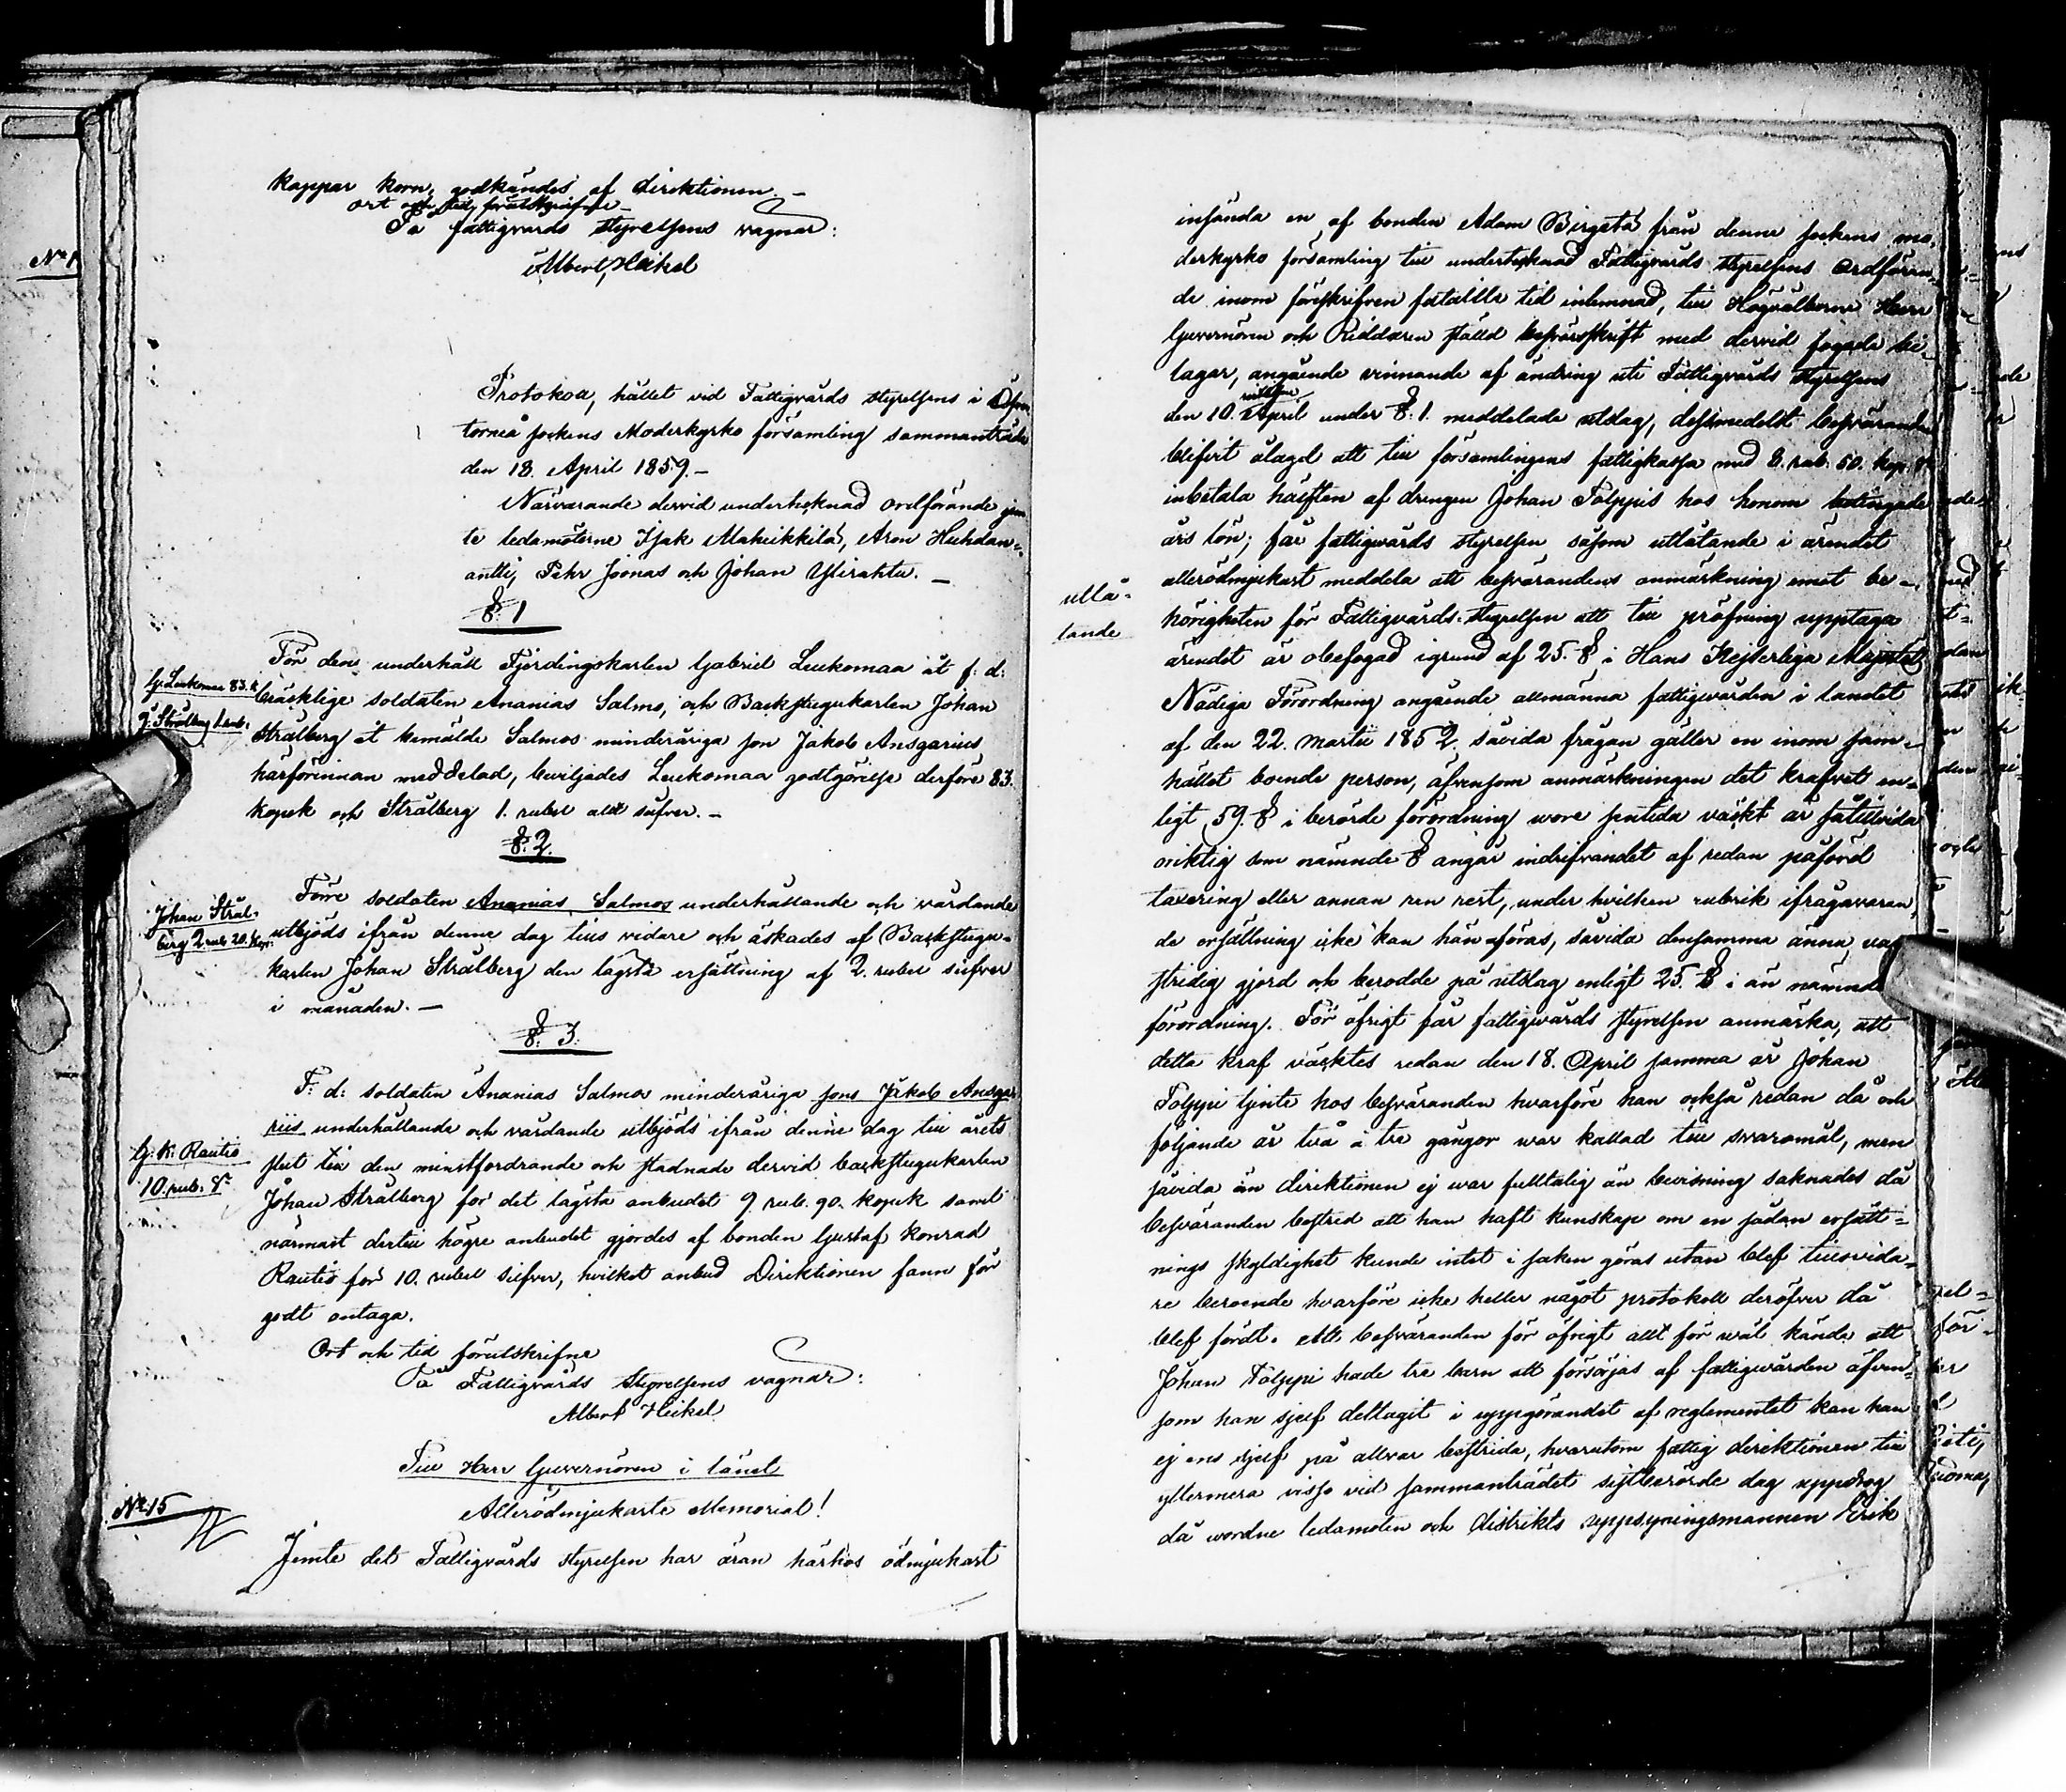 kappar korn, godkändes af direktionen. –
ort och tid förutskrifne –
På fattigvårds styrelsens vägnar:
Albert Heikel
Protokoll, hållet vid Fattigvårds styrelsens i Öfver
torneå sockens Moderkyrko församling sammanträde
den 18 April 1859. –
Närvarande dervid undertecknad ordförande jem
te ledamöterne Isak Maheikkilä, Aron Huhdan-
antti, Pehr Joonas och Johan Ylirahtu. –
§: 1
För den underhåll Fjerdingskarlen Gabriel Leukomaa åt f: d:
G. Leukomaa 83. k
bräcklige soldaten Ananias Salmo, och Backstugukarlen Johan
J: Strålberg 1 rub.
Strålberg åt bemälde Salmos minderåriga son Jakob Ansgarius
härförinnan meddelad, beviljades Leukomaa godtgörelse derföre 83.
kopek och Strålberg 1. rubel allt silfver. –
§. 2.
Förre soldaten Ananias Salmos underhållande och vårdande
Johan Strål-
berg 2 rub. 20. kop:
utbjöds ifrån denne dag tills vidare och äskades af Backstugu-
karlen Johan Strålberg den lägsta ersättning af 2. rubel silfver
i månaden. –
§: 3.
F: d: soldaten Ananias Salmos minderåriga sons Jakob Ansga
rii underhållande och vårdande utbjöds ifrån denne dag till årets
G: K: Rautio
10. rub. Sr
slut till den minstfordrande och stadnade dervid backstugukarlen
Johan Strålberg för det lägsta anbudet 9 rub. 90. kopek samt
närmast dertill högre anbudet gjordes af bonden Gustaf Konrad
Rautio för 10. rubel silfver, hvilket anbud Direktionen fann för
godt antaga.
Ort och tid förutskrifne
På Fattigvårds Styrelsens vägnar:
Albert Heikel
Till Herr Guvernören i länet
No 15
Allerödmjukaste Memorial!
Jemte det Fattigvårds styrelsen har äran härhos ödmjukast
insända en af bonden Adam Birgetä från denne sockens mo-
derkyrko församling till undertecknad Fattigvårds styrelsens Ordföran-
de inom föreskrifven fatallie tid inlemnad, till Högvälborne Herr
Guvernören och Riddaren ställd besvärsskrift med dervid fogade bi-
lagor, angående vinnande af ändring uti Fattigvårds styrelsens
den 10. sistlidne April under §: 1. meddelade utslag, dessmedelst besvärande
blifvit ålagd att till församlingens fattigkassa med 8. rub. 50. kop. Sr
inbetala hälften af drengen Johan Tolppis hos honom betingade
års lön; får fattigvårds styrelsen såsom utlåtande i ärendet
utlå-
tande
allerödmjukast meddela att besvärandens anmärkning emot be-
hörigheten för Fattigvårds-styrelsen att till pröfning upptaga
ärendet är obefogad i grund af 25. § i Hans Kejserliga Majestäts
Nådiga Förordning angående allmänna fattigvården i landet
af den 22. Martii 1852. såvida frågan gäller en inom sam-
hället boende person, äfvensom anmärkningen det krafvet en-
ligt 59. § i berörde förordning wore sentida väckt är såtillvida
oriktig som nämnde § angår indrifvandet af redan påförd
taxering eller annan ren rest, under hvilken rubrik ifrågavaran-
de ersättning icke kan hänföras, såvida densamma ännu var
stridig gjord och berodde på utslag enligt 25. § i än nämnde
förordning. För öfrigt får fattigvårds styrelsen anmärka, att
detta kraf väcktes redan den 18. April samma år Johan
Tolppi tjente hos besväranden hvarföre han också redan då och
följande år två à tre gångor war kallad till svaromål, men
såvida än direktionen ej war fulltalig än bevisning saknades då
besväranden bestred att han haft kunskap om en sådan ersätt-
nings skyldighet kunde intet i saken göras utan blef tillsvida-
re beroende hvarföre icke heller något protokoll deröfver då
blef fördt. Att besväranden för öfrigt allt för wäl kände att
Johan Tolppi hade tre barn att försörjas af fattigvården äfven-
som han sjelf deltagit i uppgörandet af reglementet kan han
ej ens sjelf på allvar bestrida, hvarutom fattig direktionen till
yttermera visso vid sammanträdet sistberörde dag uppdrog
då wordne ledamoten och distrikts uppsyningsmannen Erik